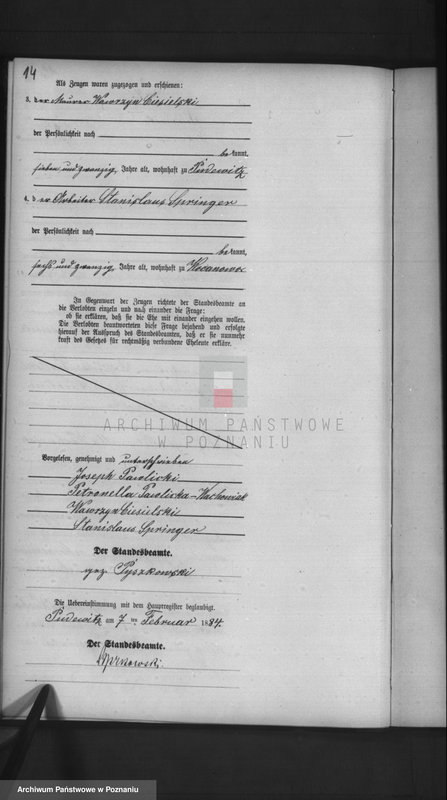 14
Als Zeugen waren zugezogen und erschienen:
3. der Maurer Wawrzyn Ciesielski
der Persönlichkeit nach
bekannt,
sieben und zwanzig, Jahre alt, wohnhaft zu Pudewitz
4. der Arbeiter Stanislaus Springer
der Persönlichkeit nach
bekannt,
sechs und zwanzig, Jahre alt, wohnhaft zu Kocanowo
In Gegenwart der Zeugen richtete der Standesbeamte an
die Verlobten einzeln und nach einander die Frage:
ob sie erklären, daß sie die Ehe mit einander eingehen wollen.
Die Verlobten beantworteten diese Frage bejahend und erfolgte
hierauf der Ausspruch des Standesbeamten, daß er sie nunmehr
kraft des Gesetzes für rechtmäßig verbundene Eheleute erkläre.
ARCHIWUM PAŃSTWOWE
W POZNANIU
Vorgelesen, genehmigt und unterschrieben
Joseph Pawlicki
Petronella Pawlicka-Wachowiak
Wawrzyn Ciesielski
Stanislaus Springer
Der Standesbeamte.
gez. Pyszkowski
Die Uebereinstimmung mit dem Hauptregister beglaubigt.
Pudewitz am 7 ten Februar 1884.
Der Standesbeamte.
Archiwum Państwowe w Poznaniu